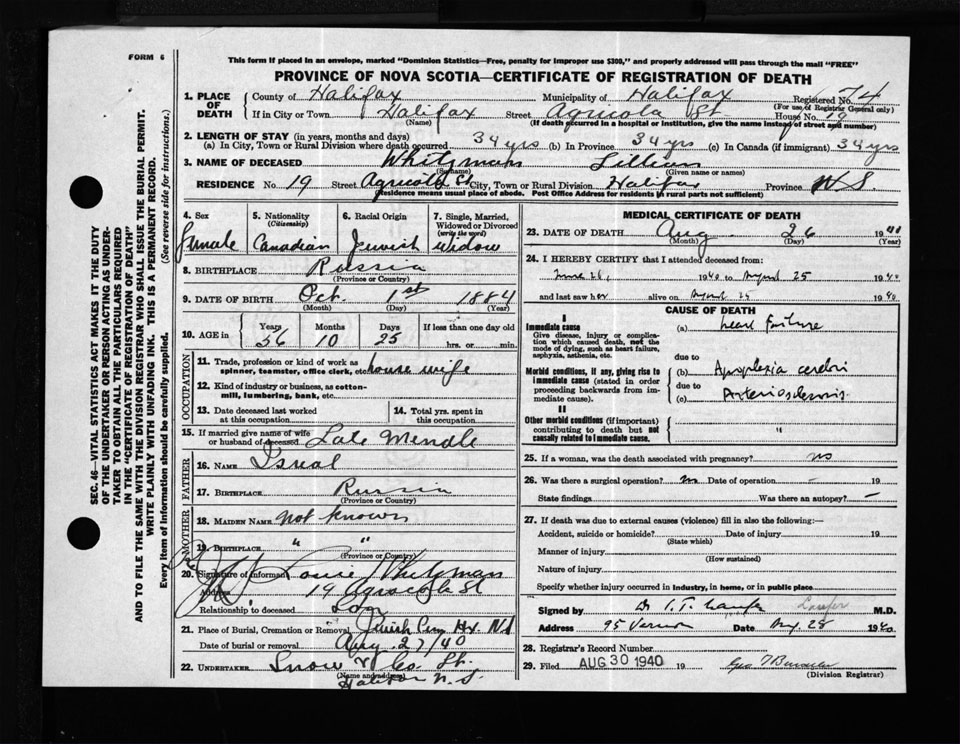 FORM 6
This form if placed in an envelope, marked "Dominion Statistics—Free, penalty for improper use $300," and properly addressed will pass through the mail "FREE"
PROVINCE OF NOVA SCOTIA—CERTIFICATE OF REGISTRATION OF DEATH
SEC. 46—VITAL STATISTICS ACT MAKES IT THE DUTY
OF THE UNDERTAKER OR PERSON ACTING AS UNDER-
TAKER TO OBTAIN ALL THE PARTICULARS REQUIRED
IN THE "CERTIFICATE OF REGISTRATION OF DEATH"
AND TO FILE THE SAME WITH THE DIVISION REGISTRAR WHO SHALL ISSUE THE BURIAL PERMIT.
WRITE PLAINLY WITH UNFADING INK. THIS IS A PERMANENT RECORD.
Every item of information should be carefully supplied. (See reverse side for instructions.)
1. PLACE OF DEATH
County of Halifax Municipality of Halifax Registered No. 74
(For use of Registrar General only)
If in City or Town Halifax Street Agricola St House No. 19
(Name) (If death occurred in a hospital or institution, give the name instead of street and number)
2. LENGTH OF STAY (in years, months and days)
(a) In City, Town or Rural Division where death occurred 34 yrs (b) In Province 34 yrs (c) In Canada (if immigrant) 34 yrs
3. NAME OF DECEASED Whitzman Lillian
(Surname) (Given name or names)
RESIDENCE No. 19 Street Agricola St City, Town or Rural Division Halifax Province N.S.
(Residence means usual place of abode. Post Office Address for residents in rural parts not sufficient)
4. Sex female
5. Nationality (Citizenship) Canadian
6. Racial Origin Jewish
7. Single, Married, Widowed or Divorced (write the word) Widow
8. BIRTHPLACE Russia
(Province or Country)
9. DATE OF BIRTH Oct. 1st 1884
(Month) (Day) (Year)
10. AGE in Years 56 Months 10 Days 25 If less than one day old hrs. or min.
OCCUPATION
11. Trade, profession or kind of work as spinner, teamster, office clerk, etc. house wife
12. Kind of industry or business, as cotton-mill, lumbering, bank, etc.
13. Date deceased last worked at this occupation
14. Total yrs. spent in this occupation
15. If married give name of wife or husband of deceased Late Mendle
FATHER
16. NAME Isreal
17. BIRTHPLACE Russia
(Province or Country)
MOTHER
18. MAIDEN NAME not known
19. BIRTHPLACE " "
(Province or Country)
20. Signature of informant Louie Whitzman
Address 19 Agracola St
Relationship to deceased Son
21. Place of Burial, Cremation or Removal Jewish Cem Hx. NS
Date of burial or removal Aug. 27/40
22. UNDERTAKER Snow & Co. Lt.
(Name and address) Halifax N.S.
MEDICAL CERTIFICATE OF DEATH
23. DATE OF DEATH Aug. 26 1940
(Month) (Day) (Year)
24. I HEREBY CERTIFY that I attended deceased from:
1940 to August 25 1940
and last saw her alive on August 25 1940
CAUSE OF DEATH
I
Immediate cause
Give disease, injury or complication which caused death, not the mode of dying, such as heart failure, asphyxia, asthenia, etc.
(a) heart failure
due to
Morbid conditions, if any, giving rise to immediate cause (stated in order proceeding backwards from immediate cause).
(b) Apoplexia cerebri
due to
(c) Arteriosclerosis
II
Other morbid conditions (if important) contributing to death but not causally related to immediate cause. "
25. If a woman, was the death associated with pregnancy? no
26. Was there a surgical operation? no Date of operation – 19
State findings Was there an autopsy? –
27. If death was due to external causes (violence) fill in also the following:—
Accident, suicide or homicide? Date of injury 19
(State which)
Manner of injury
(How sustained)
Nature of injury
Specify whether injury occurred in industry, in home, or in public place
Signed by Dr M.D.
Address 95 Vernon Date Aug. 28 1940
28. Registrar's Record Number
29. Filed AUG 30 1940 19
(Division Registrar)